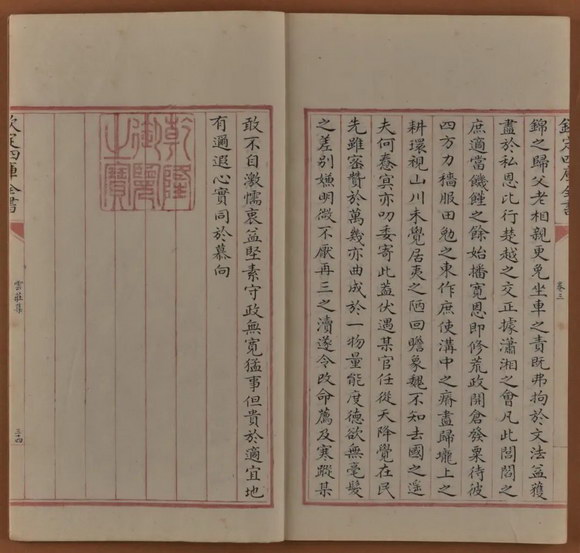 欽定四庫全書
卷三
錦之歸父老相親更免坐車之責既弗拘於文法益獲
盡於私恩比行楚越之交正據瀟湘之會凡此閭閻之
庶適當饑饉之餘始播寛恩即修荒政開倉發粟待彼
四方力穡服田勉之東作庶使溝中之瘠盡歸壠上之
耕環視山川未覺居夷之陋回瞻象魏不知去國之遥
夫何憃冥亦叨委寄此葢伏遇某官任從天降覺在民
先雖密贊於萬幾亦曲成於一物量能度德欲無毫髮
之差別嫌明微不厭再三之瀆遂令改命薦及寒蹤某
敢不自激懦衷益堅素守政無寛猛事但貴於適宜地
有邇遐心實同於慕向
乾隆
御覽
之寶
欽定四庫全書
雲莊集